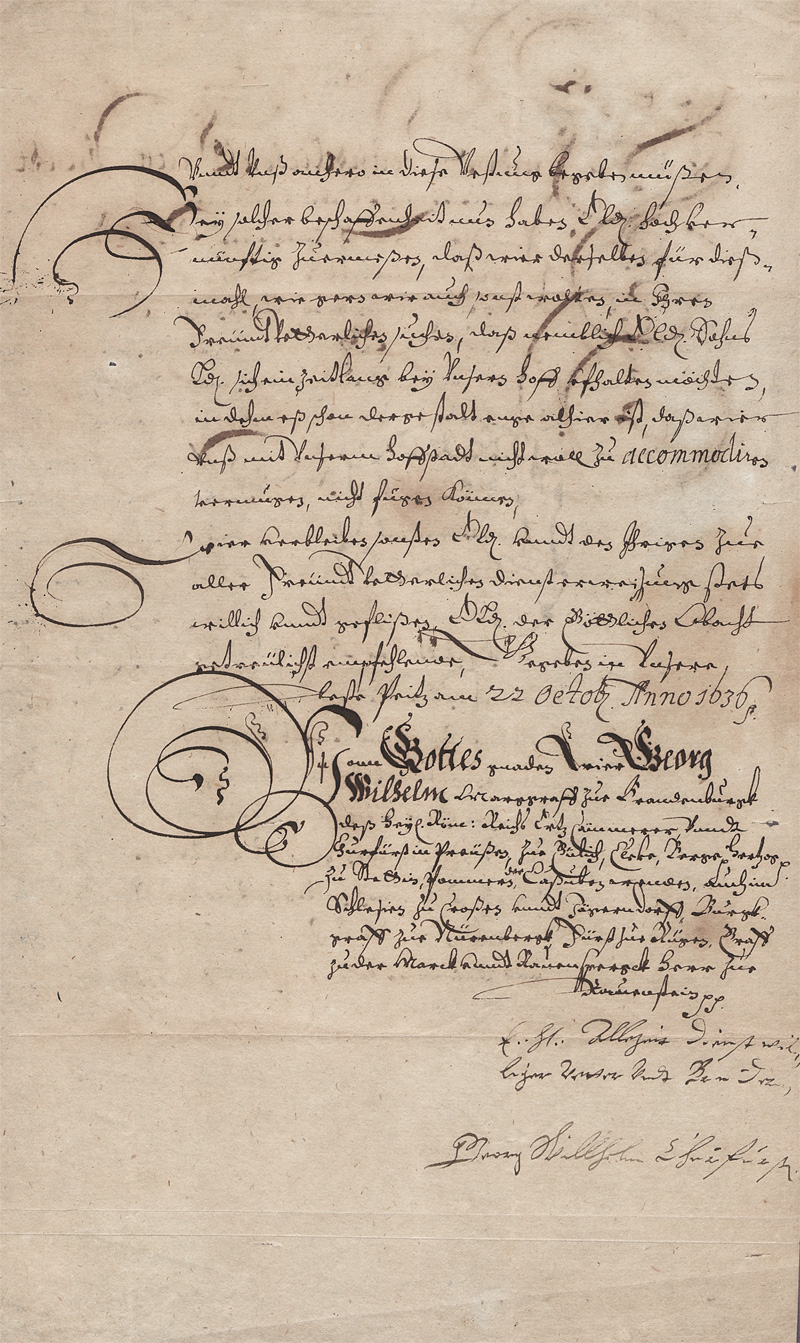 Vndt Vnß anhero in diese Vestung begeben müßen,
Bey solcher beschaffenheit nun haben Ld. hochver-
nünftig zuermeßen, daß wier derselben für dieß-
mahl, wie gern wier auch sonst wolten, in Ihren
Freundtvetterlichen suchen, daß nemblich Ld. Sohns
Ld. sich ein Zeitlang bey Vnserm Hoff ufhalten möchten,
in dehm eß schon dergestalt enge alhier ist, daß wier
Vnß mit Vnserm Hoffstadt nicht woll zu accommodiren
vermugen, nicht fugen können,
wier verbleiben sonsten Ld. vndt den Ihrigen zue
aller Freundtvetterlichen diensterweisung stets
willich vndt geflißen, Ld. der Göttlichen Obacht
getreulichst empfehlende, Gegeben in Vnsere
Veste Peitz am 22 Octob. Anno 1636
Von Gottes gnaden Wier Georg
Wilhelm Marggraff zue Brandenburgk
deß Heyl. Röm: Reichs Ertz Cämmerer, Vndt
Churfürst in Preußen, zue Gülich, Cleve, Berge, Hertzog
zu Stettin, Pommern, der Caßuben, Wenden, auch in
Schlesien zu Croßen vndt Jägerndorff, Burgk-
graff zue Nürenbergk, Fürst zue Rügen, Graff
zu der Marck vndt Rauenspergk, Herr zue
Rauenstein pp
E. L. Allezeit dienstwil-
liger Vetter vndt Bruder,
Georg Wilhelm Churfürst